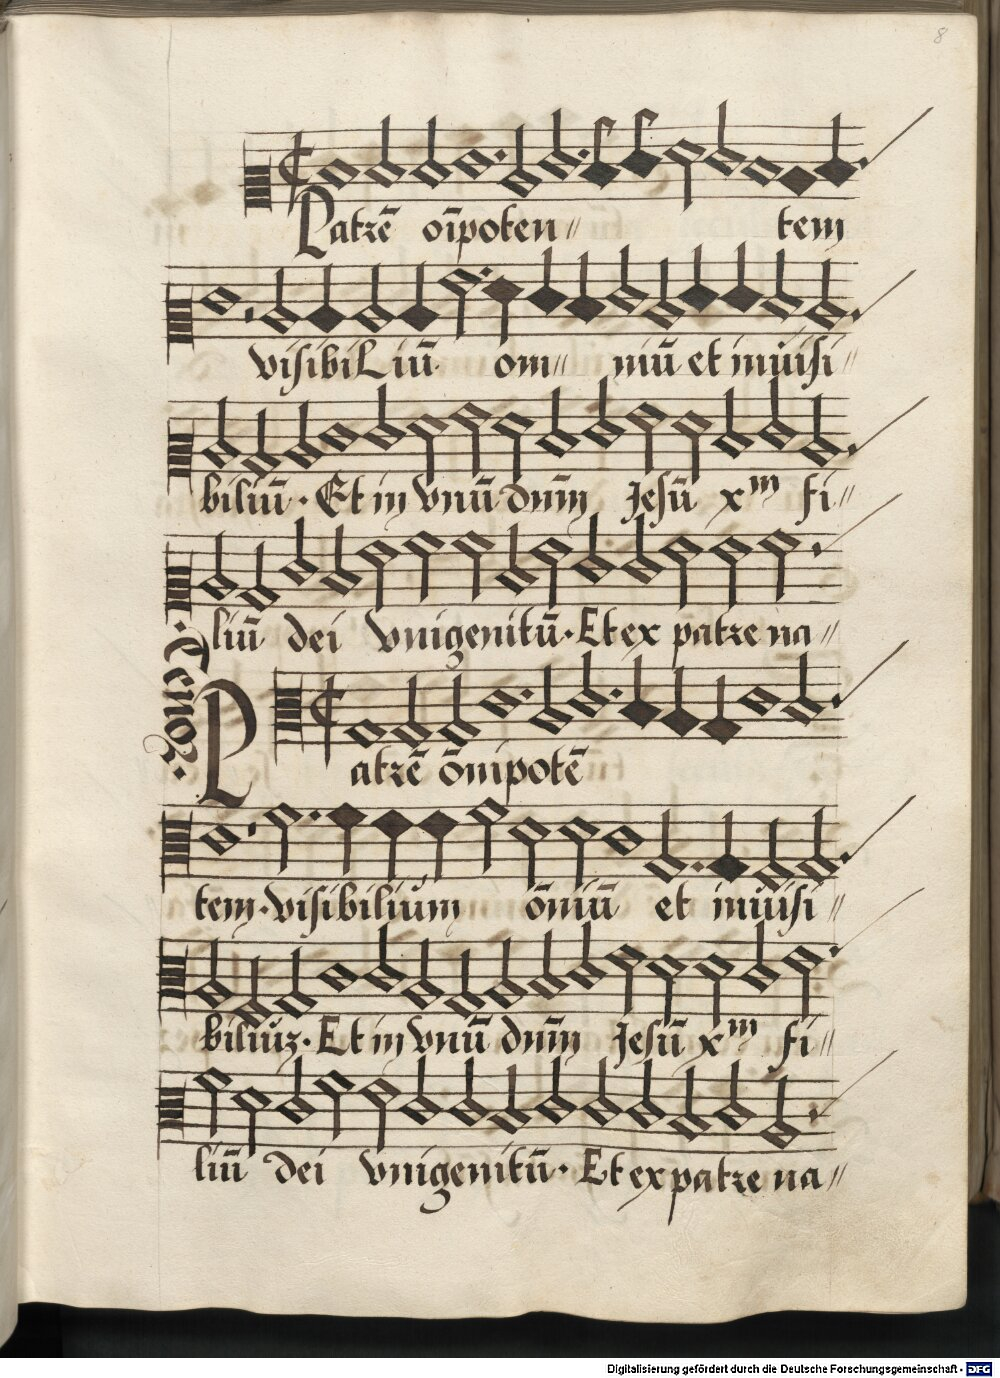 8
Patrē oīpoten〃 tem
visibiliū om〃 niū et inuisi〃
biliū · Et in vnū dnīm Jesū xm fi〃
liū dei vnigenitū · Et ex patre na〃
· Tenor ·
Patrē ōnipotē
tem · visibilium ōniū et inuisi〃
biliuz · Et in vnū dnīm Jesū xm fi〃
liū dei vnigenitū · Et ex patre na〃
Digitalisierung gefördert durch die Deutsche Forschungsgemeinschaft - DFG